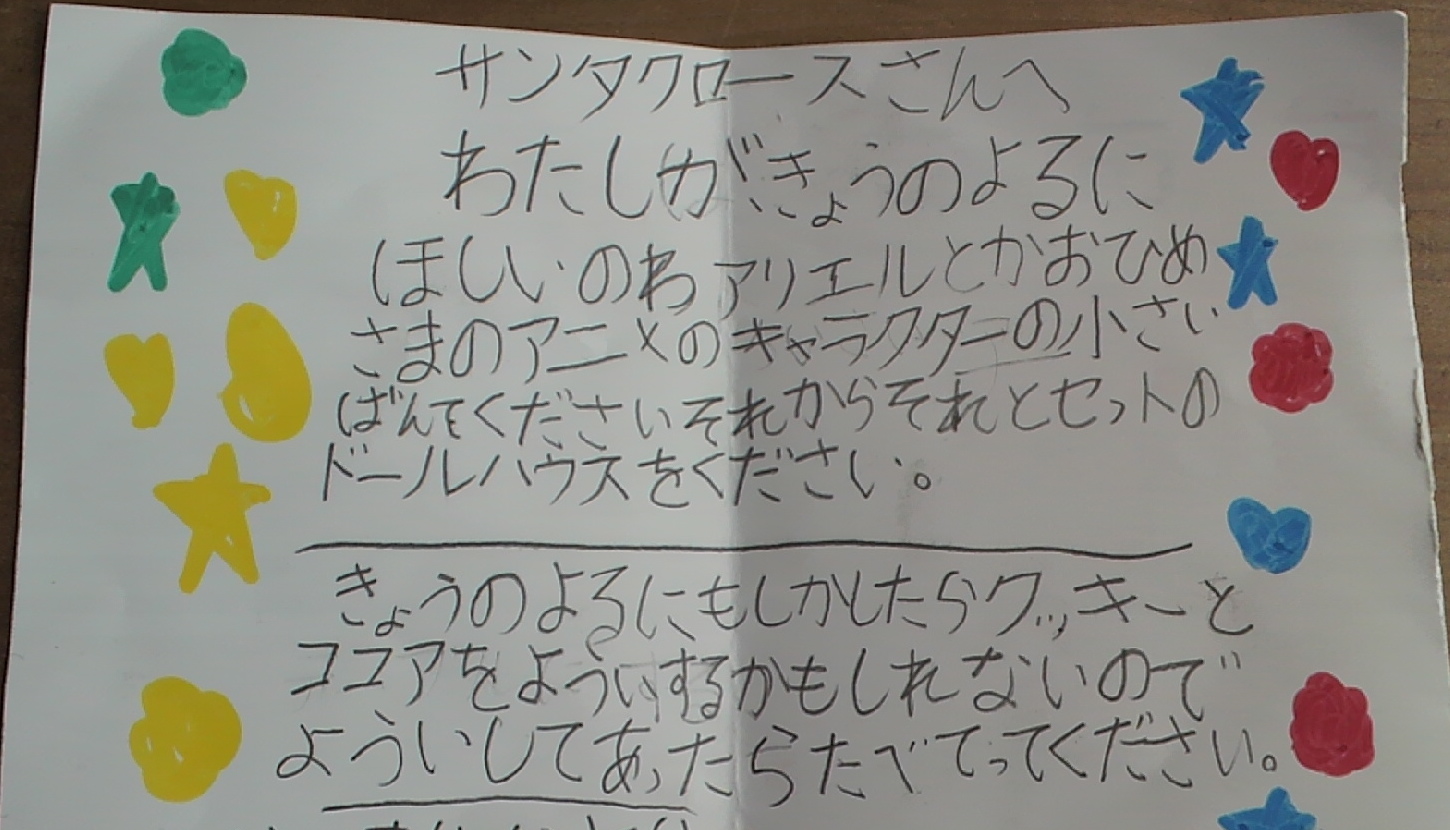 サンタクロースさんへ
わたしがきょうのよるに
ほしいのわアリエルとかおひめ
さまのアニメのキャラクターの小さい
ばんてくださいそれからそれとセットの
ドールハウスをください。
きょうのよるにもしかしたらクッキーと
ココアをよういするかもしれないので
よういしてあったらたべてってください。